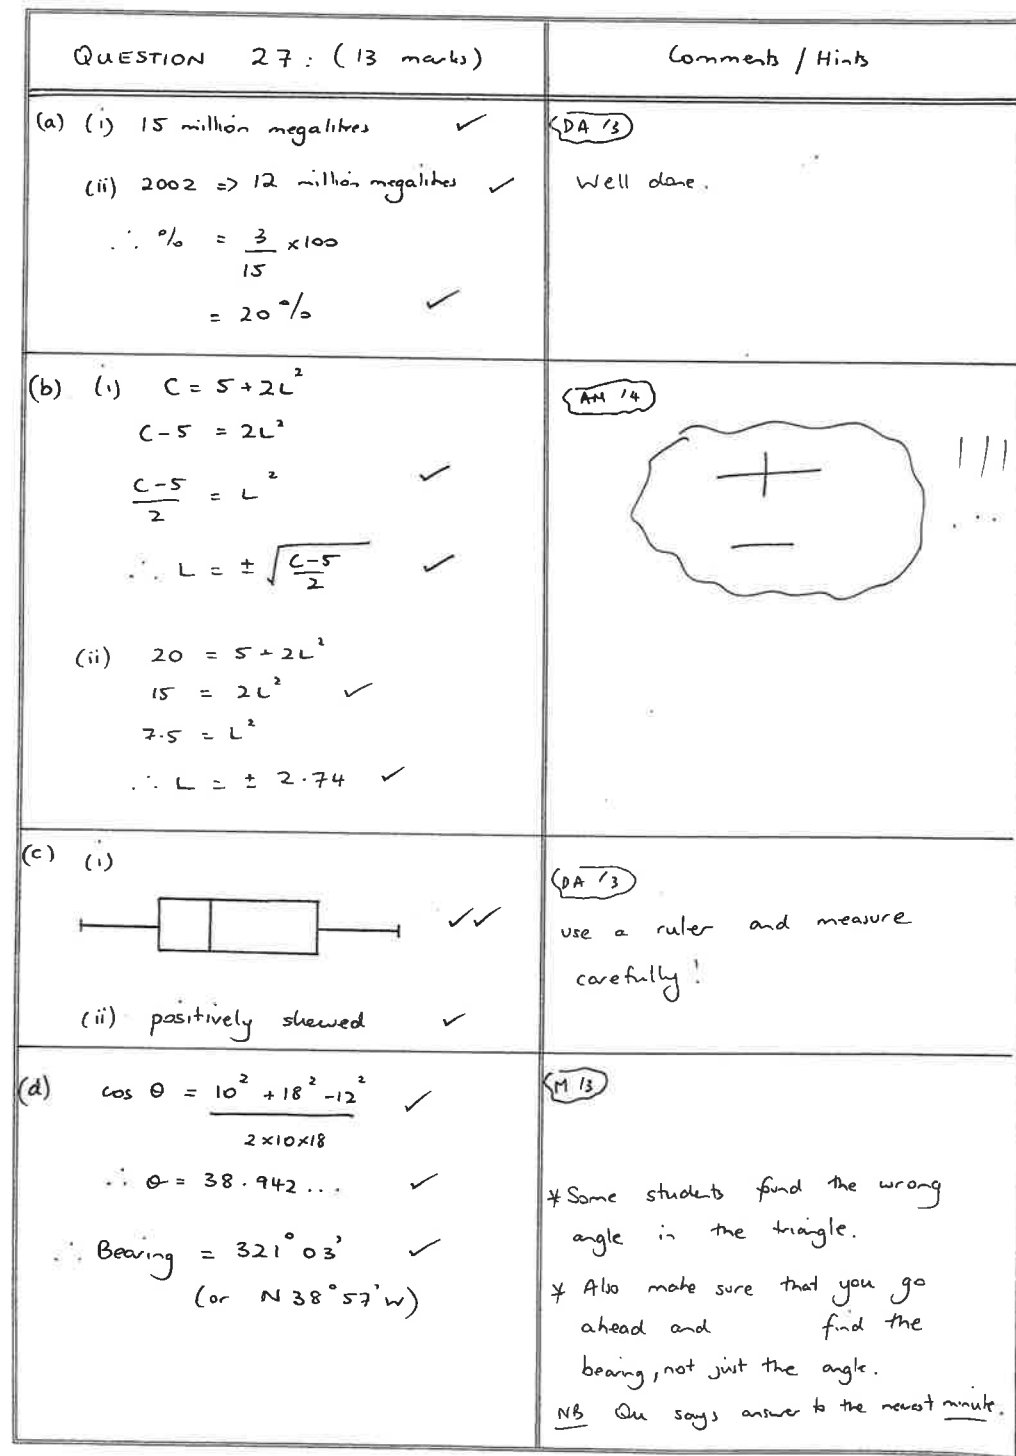 QUESTION 27 : (13 marks)
Comments / Hints
(a) (i) 15 million megalitres ✓
(ii) 2002 => 12 million megalitres ✓
∴ % = 3/15 × 100
= 20% ✓
DA /3
Well done.
(b) (i) C = 5 + 2L²
C - 5 = 2L²
(C-5)/2 = L² ✓
∴ L = ± √((C-5)/2) ✓
(ii) 20 = 5 + 2L²
15 = 2L² ✓
7.5 = L²
∴ L = ± 2.74 ✓
AM /4
+
− !!!
(c) (i)
✓✓
(ii) positively skewed ✓
DA /3
use a ruler and measure
carefully!
(d) cos θ = (10² + 18² - 12²)/(2×10×18) ✓
∴ θ = 38.942... ✓
∴ Bearing = 321°03' ✓
(or N38°57'W)
M /3
* Some students found the wrong
angle in the triangle.
* Also make sure that you go
ahead and find the
bearing, not just the angle.
NB Qu says answer to the nearest minute.